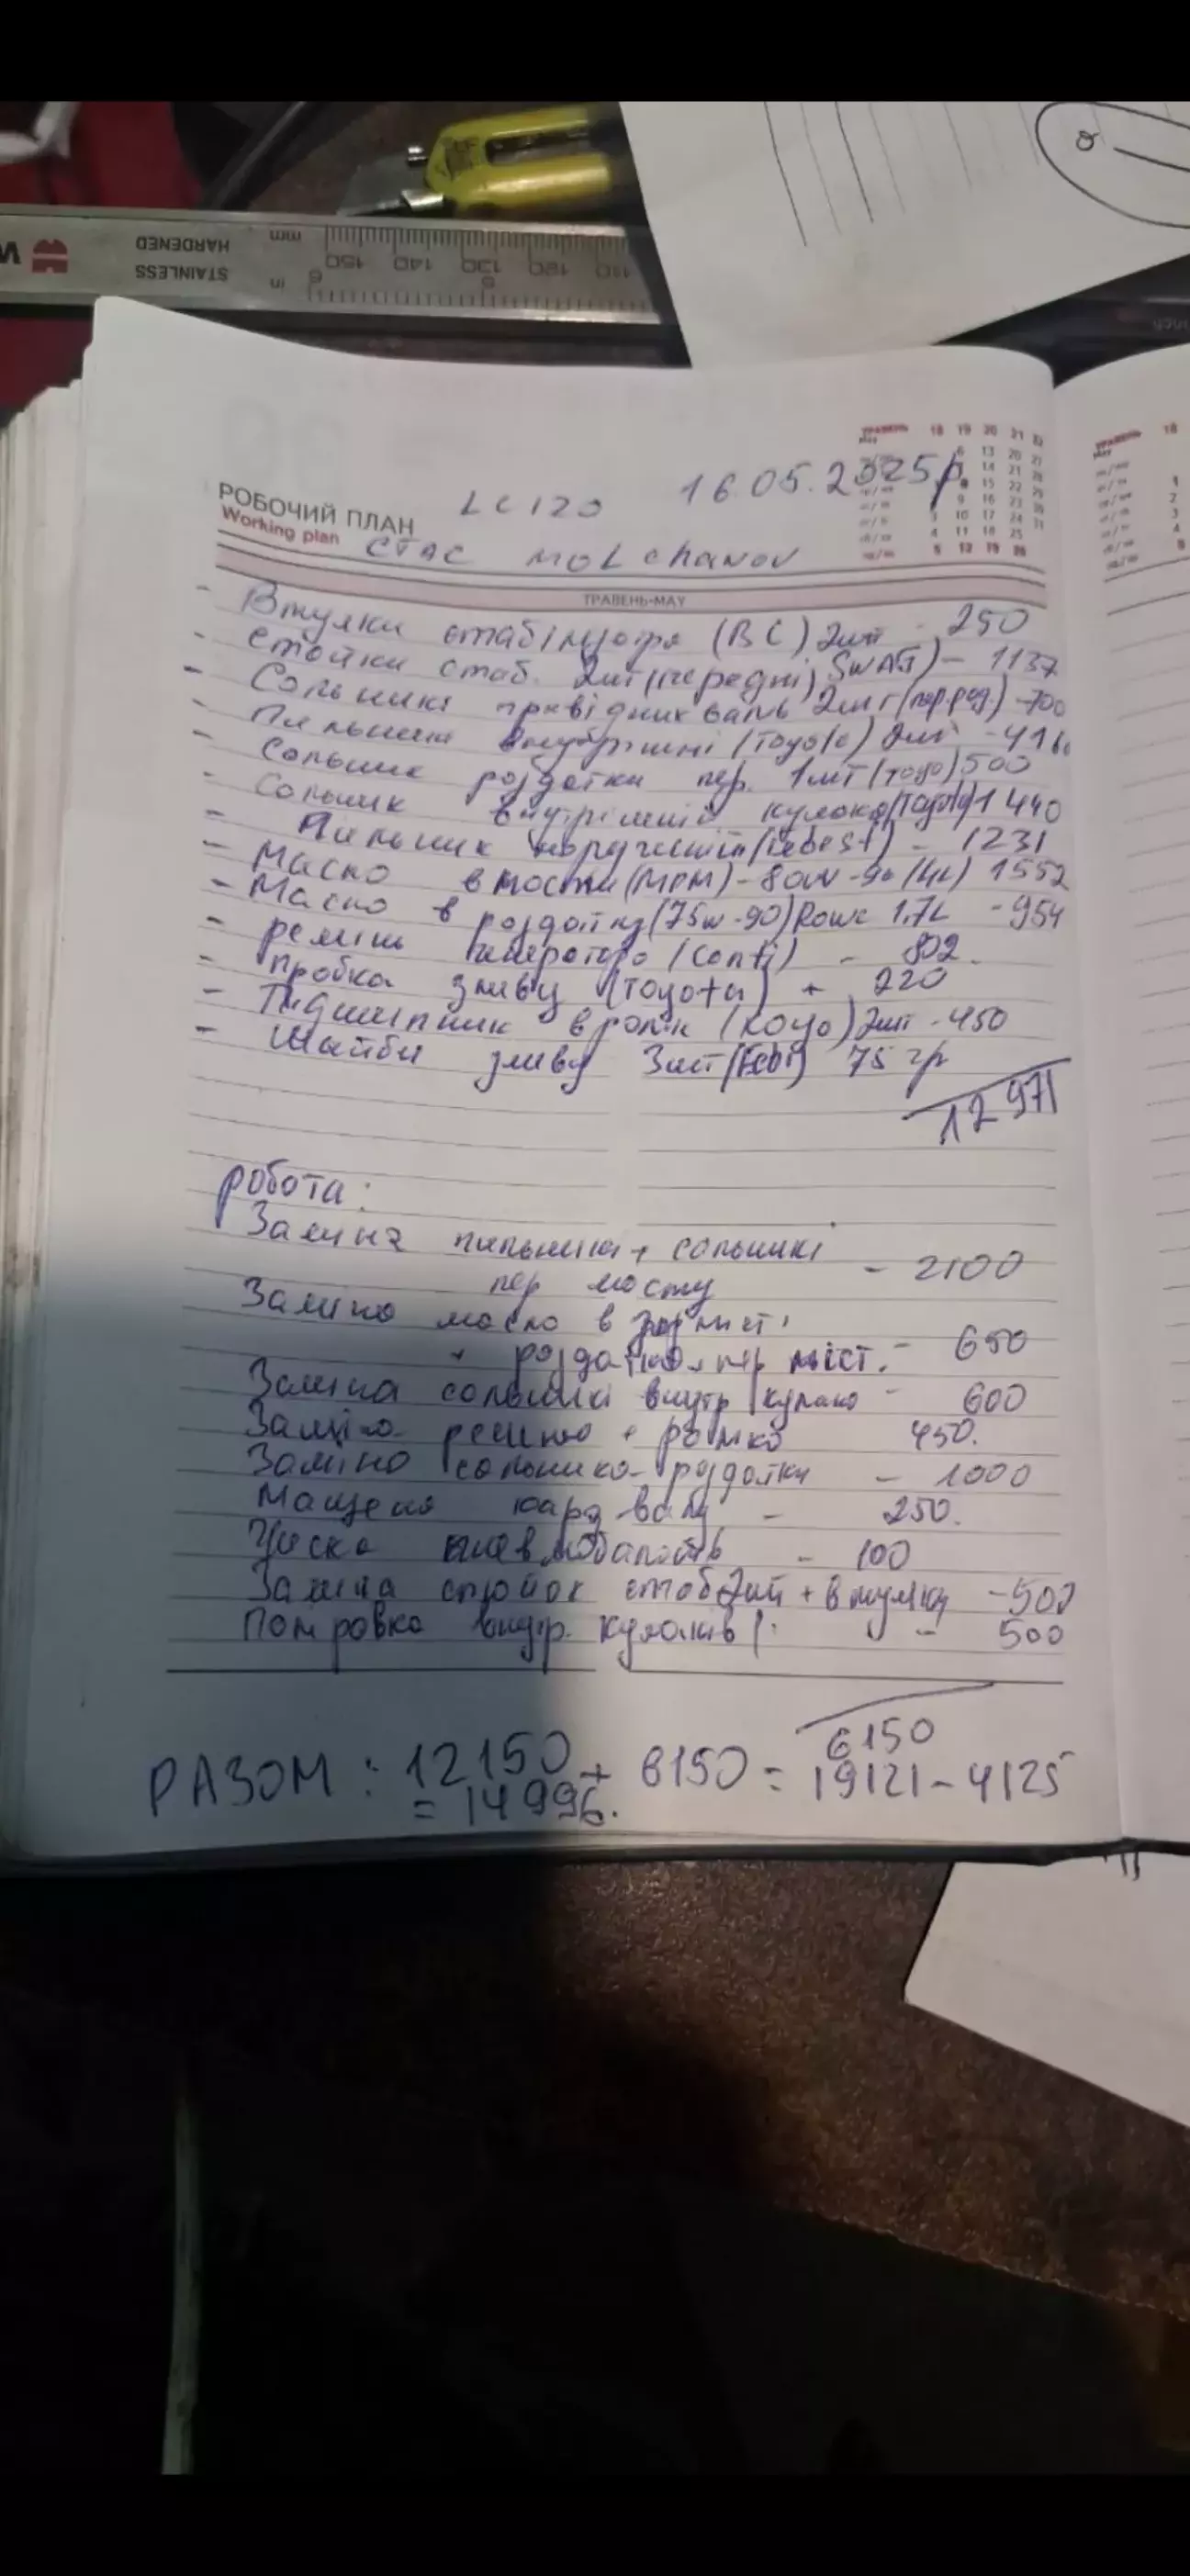 HARDENED
STAINLESS
mm
in
150 140 130 120 110
6 5
ТРАВЕНЬ 18 19 20 21 22
РОБОЧИЙ ПЛАН
Working plan
LC120 16.05.2025р
СТАС MOLchanov
ТРАВЕНЬ-MAY
- Втулки стабілізатора (BC) 2шт - 250
- Стойки стаб. 2шт (передні) SWAG) - 1137
- Сольникі привідних валів 2шт (перред.) -700
- Пильники внутрішні (Toyota) 2шт -4160
- Сольник роздатки пер. 1шт (Toyo) 500
- Сольник внутрішній кулака (Toyota) 1440
- Пильник наружній (febest) - 1231
- Масло в мости (MPM) - 80w-90 (4L) 1552
- Масло в роздатку (75w-90) Rowe 1.7L - 954
- ремінь генератора (Conti) - 802.
- Пробка зливу (Toyota) - 220
- Підшипник в ролік (Koyo) 2шт - 450
- Шайби зливу 3шт (Febi) 75 гр
12 971
робота:
Заміна пильника + сольникі
пер мосту - 2100
Заміна масло в
+ роздатка + пер міст. - 650
Заміна сольникі внутр кулако - 600
Заміна ременю + роліко 450.
Заміна сольнико роздатки - 1000
Мащеня кард валу - 250.
Чиска - 100
Заміна стойок стаб 2шт + втулки - 500
внутр. кулаків - 500
6150
РАЗОМ: 12150 + 6150 = 19121 - 4125
= 14996.